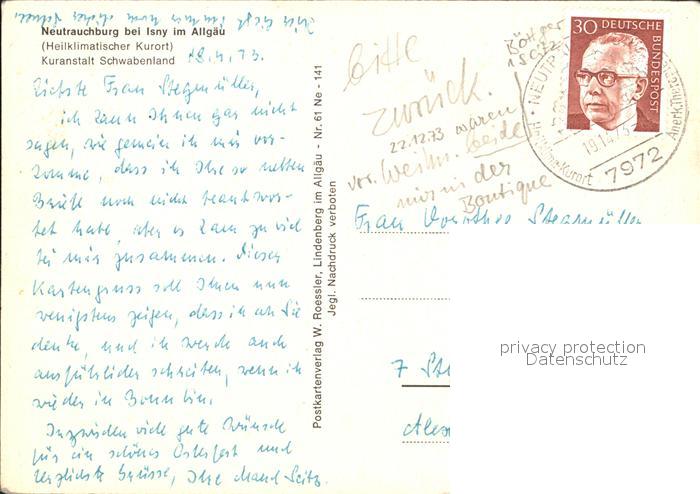 Neutrauchburg bei Isny im Allgäu
(Heilklimatischer Kurort)
Kuranstalt Schwabenland 18.4.73
Liebste Frau Stegmüller,
ich kann Ihnen gar nicht
sagen, wie gemein ich mir vor-
komme, dass ich Ihre so netten
Briefe noch nicht beantwor-
tet habe, aber es kam zu viel
bei mir zusammen. Dieser
Kartengruss soll Ihnen nun
wenigstens zeigen, dass ich an Sie
denke, und ich werde auch
ausführlicher schreiben, wenn ich
wieder in Bonn bin.
Inzwischen viele gute Wünsche
für ein schönes Osterfest und
herzlichste Grüsse, Ihre Seitz.
Postkartenverlag W. Roessler, Lindenberg im Allgäu - Nr. 61 Ne - 141
Jegl. Nachdruck verboten
bitte
zurück.
22.12.73 waren
vor Weihn. beide
mir in der
Boutique
30 DEUTSCHE
BUNDESPOST
NEUTR
19.4.73
7972
Kurort
Frau Dorothee Stegmüller
7 St
Alex
privacy protection
Datenschutz